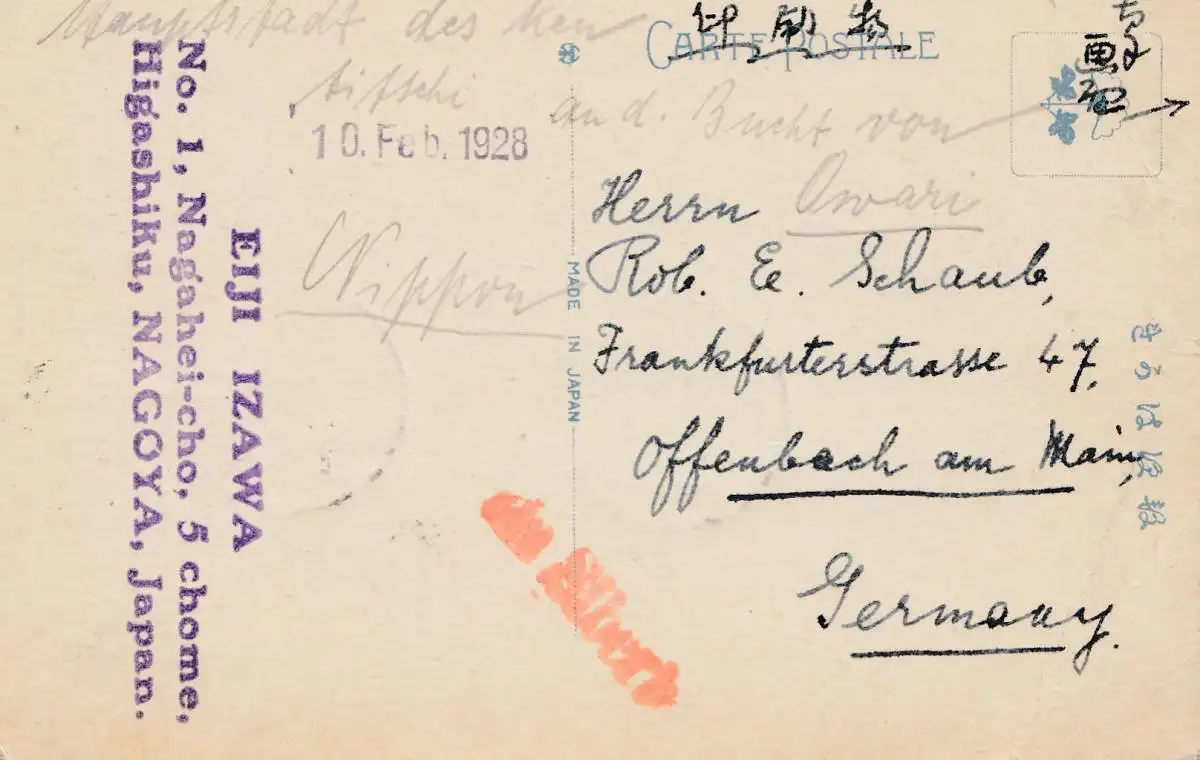 Hauptstadt des Ken
Aitschi
and. Bucht von
Owari
Nippon
10. Feb. 1928
EIJI IZAWA
No. 1, Nagahei-cho, 5 chome,
Higashiku, NAGOYA, Japan.
CARTE POSTALE
印刷物
MADE IN JAPAN
Herrn
Rob. E. Schaub,
Frankfurterstrasse 47,
Offenbach am Main,
Germany.